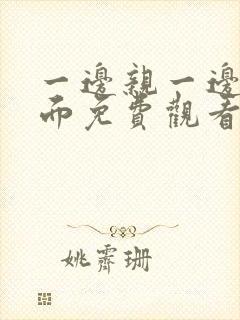 一邊親一邊
而免費觀看
姚霽珊